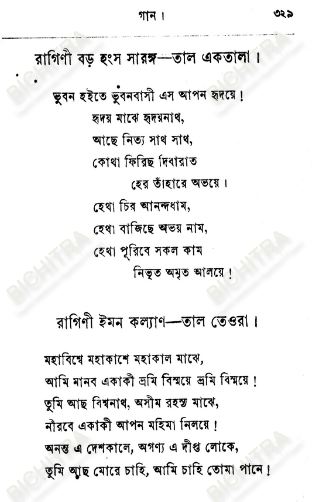 গান।
৩২৯
রাগিণী বড় হংস সারঙ্গ—তাল একতালা।
ভুবন হইতে ভুবনবাসী এস আপন হৃদয়ে!
হৃদয় মাঝে হৃদয়নাথ,
আছে নিত্য সাথ সাথ,
কোথা ফিরিছ দিবারাত
হের তাঁহারে অভয়ে।
হেথা চির আনন্দধাম,
হেথা বাজিছে অভয় নাম,
হেথা পূরিবে সকল কাম
নিভৃত অমৃত আলয়ে!
রাগিণী ইমন কল্যাণ—তাল তেওরা।
মহাবিশ্বে মহাকাশে মহাকাল মাঝে,
আমি মানব একাকী ভ্রমি বিস্ময়ে ভ্রমি বিস্ময়ে!
তুমি আছ বিশ্বনাথ, অসীম রহস্য মাঝে,
নীরবে একাকী আপন মহিমা নিলয়ে!
অনন্ত এ দেশকালে, অগণ্য এ দীপ্ত লোকে,
তুমি আছ মোরে চাহি, আমি চাহি তোমা পানে!
BICHITRA
BICHITRA
BICHITRA
BICHITRA
BICHITRA
BICHITRA